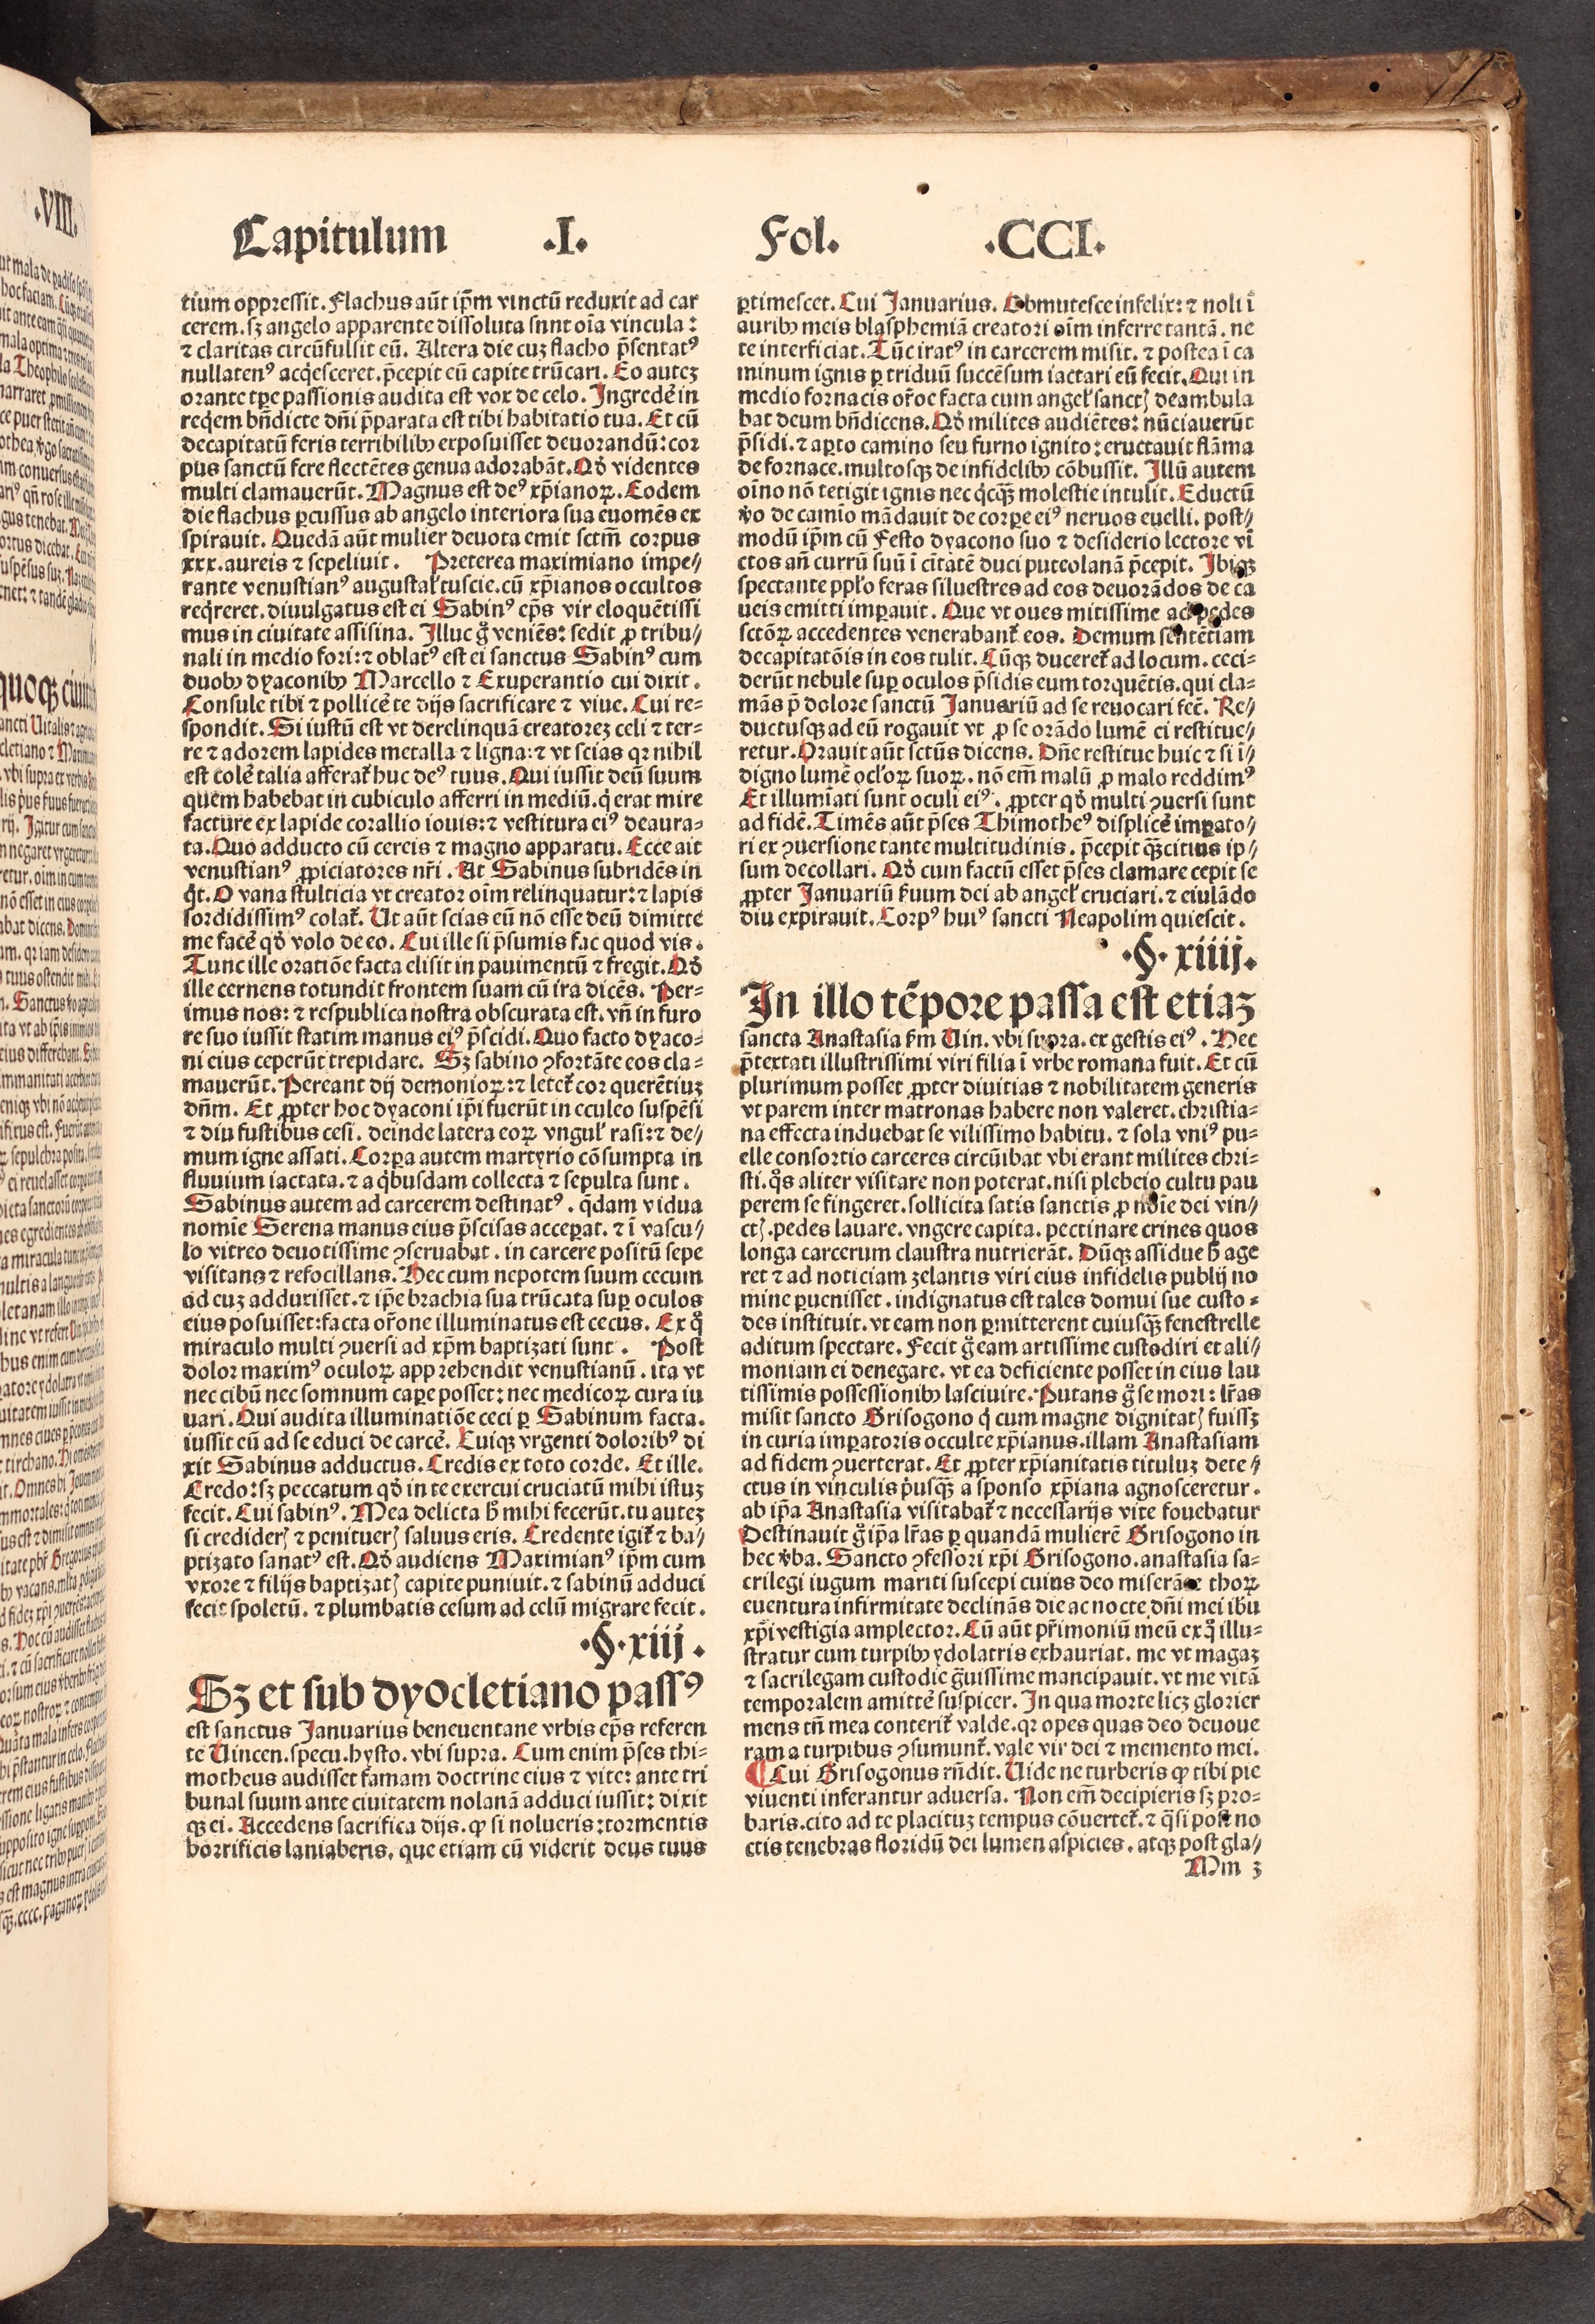 Capitulum .I. Fol. .CCI.
tium oppressit. Flachus aūt ip̄m vinctū reduxit ad car
cerem. sꝫ angelo apparente dissoluta snnt oīa vincula :
⁊ claritas circūfulsit eū. Altera die cuꝫ flacho p̄sentatꝰ
nullatenꝰ acq̇esceret. p̄cepit eū capite trūcari. Eo auteꝫ
orante tꝑe passionis audita est vox de celo. Ingredē in
req̇em bn̄dicte dn̄i p̄parata est tibi habitatio tua. Et cū
decapitatū feris terribilibꝰ exposuisset deuorandū: cor
pus sanctū fere flectētes genua adorabāt. Qđ videntes
multi clamauerūt. Magnus est deꝰ xp̄ianoꝝ. Eodem
die flachus ꝑcussus ab angelo interiora sua euomēs ex
spirauit. Quedā aūt mulier deuota emit sctm̄ corpus
xxx. aureis ⁊ sepeliuit . Preterea maximiano impe⸗
rante venustianꝰ augustal̕ tuscie. cū xp̄ianos occultos
req̇reret. diuulgatus est ei Sabinꝰ ep̄s vir eloquētissi
mus in ciuitate assisina. Illuc g̊ veniēs: sedit ꝓ tribu⸗
nali in medio fori: ⁊ oblatꝰ est ei sanctus Sabinꝰ cum
duobꝰ dyaconibꝰ Marcello ⁊ Exuperantio cui dixit .
Consule tibi ⁊ pollicē te dijs sacrificare ⁊ viue. Cui re⸗
spondit. Si iustū est vt derelinquā creatoreꝫ celi ⁊ ter⸗
re ⁊ adorem lapides metalla ⁊ ligna: ⁊ vt scias qꝛ nihil
est colē talia afferat̕ huc deꝰ tuus. Qui iussit deū suum
quem habebat in cubiculo afferri in mediū. q̇ erat mire
facture ex lapide corallio iouis: ⁊ vestitura eiꝰ deaura⸗
ta. Quo adducto cū cereis ⁊ magno apparatu. Ecce ait
venustianꝰ ꝓpiciatores nr̄i . At Sabinus subridēs in
q̇t. O vana stulticia vt creator oīm relinquatur: ⁊ lapis
sordidissimꝰ colat̕. Ut aūt scias eū nō esse deū dimitte
me facē qđ volo de eo. Cui ille si p̄sumis fac quod vis .
Tunc ille oratiōe facta elisit in pauimentū ⁊ fregit. Qđ
ille cernens totundit frontem suam cū ira dicēs. Per⸗
imus nos: ⁊ respublica nostra obscurata est. vn̄ in furo
re suo iussit statim manus eiꝰ p̄scidi. Quo facto dyaco⸗
ni eius ceperūt trepidare. Sꝫ sabino ꝯfortāte eos cla⸗
mauerūt. Pereant dij demonioꝝ: ⁊ letet̕ cor querētiuꝫ
dn̄m. Et ꝓpter hoc dyaconi ip̄i fuerūt in eculeo suspēsi
⁊ diu fustibus cesi. deinde latera eoꝝ vngul̕ rasi: ⁊ de⸗
mum igne assati. Corꝑa autem martyrio cōsumpta in
fluuium iactata. ⁊ a q̇busdam collecta ⁊ sepulta sunt .
Sabinus autem ad carcerem destinatꝰ . q̇dam vidua
nomīe Serena manus eius p̄scisas acceꝑat. ⁊ ī vascu⸗
lo vitreo deuotissime ꝯseruabat . in carcere positū sepe
visitans ⁊ refocillans. Hec cum nepotem suum cecum
ad cuꝫ adduxisset. ⁊ ip̄e brachia sua trūcata suꝑ oculos
eius posuisset: facta or̄one illuminatus est cecus. Ex q̊
miraculo multi ꝯuersi ad xp̄m baptizati sunt . Post
dolor maximꝰ oculoꝝ apprehendit venustianū . ita vt
nec cibū nec somnum caꝑe posset: nec medicoꝝ cura iu
uari. Qui audita illuminatiōe ceci ꝑ Sabinum facta.
iussit eū ad se educi de carcē. Euiqꝫ vrgenti doloribꝰ di
xit Sabinus adductus. Credis ex toto corde. Et ille.
Credo: sꝫ peccatum qđ in te exercui cruciatū mihi istuꝫ
fecit. Cui sabinꝰ. Mea delicta h̄ mihi fecerūt. tu auteꝫ
si credideꝛ̕ ⁊ penitueꝛ̕ saluus eris. Credente igit̕ ⁊ ba⸗
ptizato sanatꝰ est. Qđ audiens Maximianꝰ ip̄m cum
vxore ⁊ filijs baptizat̕ capite puniuit. ⁊ sabinū adduci
fecit spoletū. ⁊ plumbatis cesum ad celū migrare fecit .
.§. xiij .
Sꝫ et sub dyocletiano passꝰ
est sanctus Januarius beneuentane vrbis ep̄s referen
te Uincen. specu. hysto. vbi supra. Cum enim p̄ses thi⸗
motheus audisset famam doctrine eius ⁊ vite: ante tri
bunal suum ante ciuitatem nolanā adduci iussit: dixit
qꝫ ei. Accedens sacrifica dijs. ꝙ si nolueris: tormentis
horrificis laniaberis. que etiam cū viderit deus tuus
ꝑtimescet. Cui Januarius. Obmutesce infelix: ⁊ noli ī
auribꝰ meis blasphemiā creatori oīm inferre tantā. ne
te interficiat. Tūc iratꝰ in carcerem misit. ⁊ postea ī ca
minum ignis ꝑ triduū succēsum iactari eū fecit. Qui in
medio fornacis or̄oe facta cum angel̕ sanct̕ deambula
bat deum bn̄dicens. Qđ milites audiētes: nūciauerūt
p̄sidi. ⁊ aꝑto camino seu furno ignito: eructauit flāma
de fornace. multosqꝫ de infidelibꝰ cōbussit. Illū autem
oīno nō tetigit ignis nec q̇cqꝫ̄ molestie intulit. Eductū
v̊o de camīo mādauit de corꝑe eiꝰ neruos euelli. post⸗
modū ip̄m cū Festo dyacono suo ⁊ desiderio lectore vī
ctos an̄ currū suū ī cītātē duci puteolanā p̄cepit. Ibiqꝫ
spectante ppl̕o feras siluestres ad eos deuorādos de ca
ueis emitti imꝑauit. Que vt oues mitissime ad pedes
sctōꝝ accedentes venerabant̕ eos. Demum sentētiam
decapitatōis in eos tulit. Cūqꝫ duceret̕ ad locum. ceci⸗
derūt nebule suꝑ oculos p̄sidis eum torquētis. qui cla⸗
mās p̄ dolore sanctū Januariū ad se reuocari fec̄. Re⸗
ductusqꝫ ad eū rogauit vt ꝓ se orādo lumē ei restitue⸗
retur. Orauit aūt sctūs dicens. Dn̄e restitue huic ⁊ si ī⸗
digno lumē ocl̕oꝝ suoꝝ. nō em̄ malū ꝓ malo reddimꝰ
Et illumīati sunt oculi eiꝰ. ꝓpter qđ multi ꝯuersi sunt
ad fidē. Timēs aūt p̄ses Thimotheꝰ displicē imꝑato⸗
ri ex ꝯuersione tante multitudinis. p̄cepit qꝫ̄citius ip⸗
sum decollari. Qđ cum factū esset p̄ses clamare cepit se
ꝓpter Januariū s̕uum dei ab angel̕ cruciari. ⁊ eiulādo
diu expirauit. Corpꝰ huiꝰ sancti Neapolim quiescit .
.§. xiiij.
In illo tēpore passa est etiaꝫ
sancta Anastasia s̕m Uin. vbi supra. ex gestis eiꝰ . Hec
p̄textati illustrissimi viri filia ī vrbe romana fuit. Et cū
plurimum posset ꝓpter diuitias ⁊ nobilitatem generis
vt parem inter matronas habere non valeret. christia⸗
na effecta induebat se vilissimo habitu. ⁊ sola vniꝰ pu⸗
elle consortio carceres circūibat vbi erant milites chri⸗
sti. q̊s aliter visitare non poterat. nisi plebeio cultu pau
perem se fingeret. sollicita satis sanctis ꝓ noīe dei vin⸗
ct̕. pedes lauare. vngere capita. pectinare crines quos
longa carcerum claustra nutrierāt. Dūqꝫ assidue h̄ age
ret ⁊ ad noticiam zelantis viri eius infidelis publij no
mine ꝑuenisset . indignatus est tales domui sue custo ⸗
des instituit. vt eam non ꝑmitterent cuiusqꝫ̄ fenestrelle
aditum spectare. Fecit g̊ eam artissime custodiri et ali⸗
moniam ei denegare. vt ea deficiente posset in eius lau
tissimis possessionibꝰ lasciuire. Putans g̊ se mori: lr̄as
misit sancto Grisogono q̇ cum magne dignitat̕ fuissꝫ
in curia imꝑatoris occulte xp̄ianus. illam Anastasiam
ad fidem ꝯuerterat. Et ꝓpter xp̄ianitatis tituluꝫ dete⸗
ctus in vinculis p̄usqꝫ̄ a sponso xp̄iana agnosceretur .
ab ip̄a Anastasia visitabat̕ ⁊ necessarijs vite fouebatur
Destinauit g̊ ip̄a lr̄as ꝑ quandā mulierē Grisogono in
hec v̊ba. Sancto ꝯfessori xp̄i Grisogono. anastasia sa⸗
crilegi iugum mariti suscepi cuius deo thoꝝ
euentura infirmitate declinās die ac nocte dn̄i mei ihū
xp̄i vestigia amplector. Cū aūt pr̄imoniū meū ex q̊ illu⸗
stratur cum turpibꝰ ydolatris exhauriat. me vt magaꝫ
⁊ sacrilegam custodie g̊uissime mancipauit. vt me vitā
temporalem amittē suspicer. In qua morte licꝫ glorier
mens tn̄ mea conterit̕ valde. qꝛ opes quas deo deuoue
ram a turpibus ꝯsumunt̕. vale vir dei ⁊ memento mei.
¶ Cui Grisogonus rn̄dit. Uide ne turberis ꝙ tibi pie
viuenti inferantur aduersa. Non em̄ decipieris sꝫ pro⸗
baris. cito ad te placituꝫ tempus cōuertet̕. ⁊ q̄si post no
ctis tenebras floridū dei lumen aspicies . atqꝫ post gla⸗
Mm 3